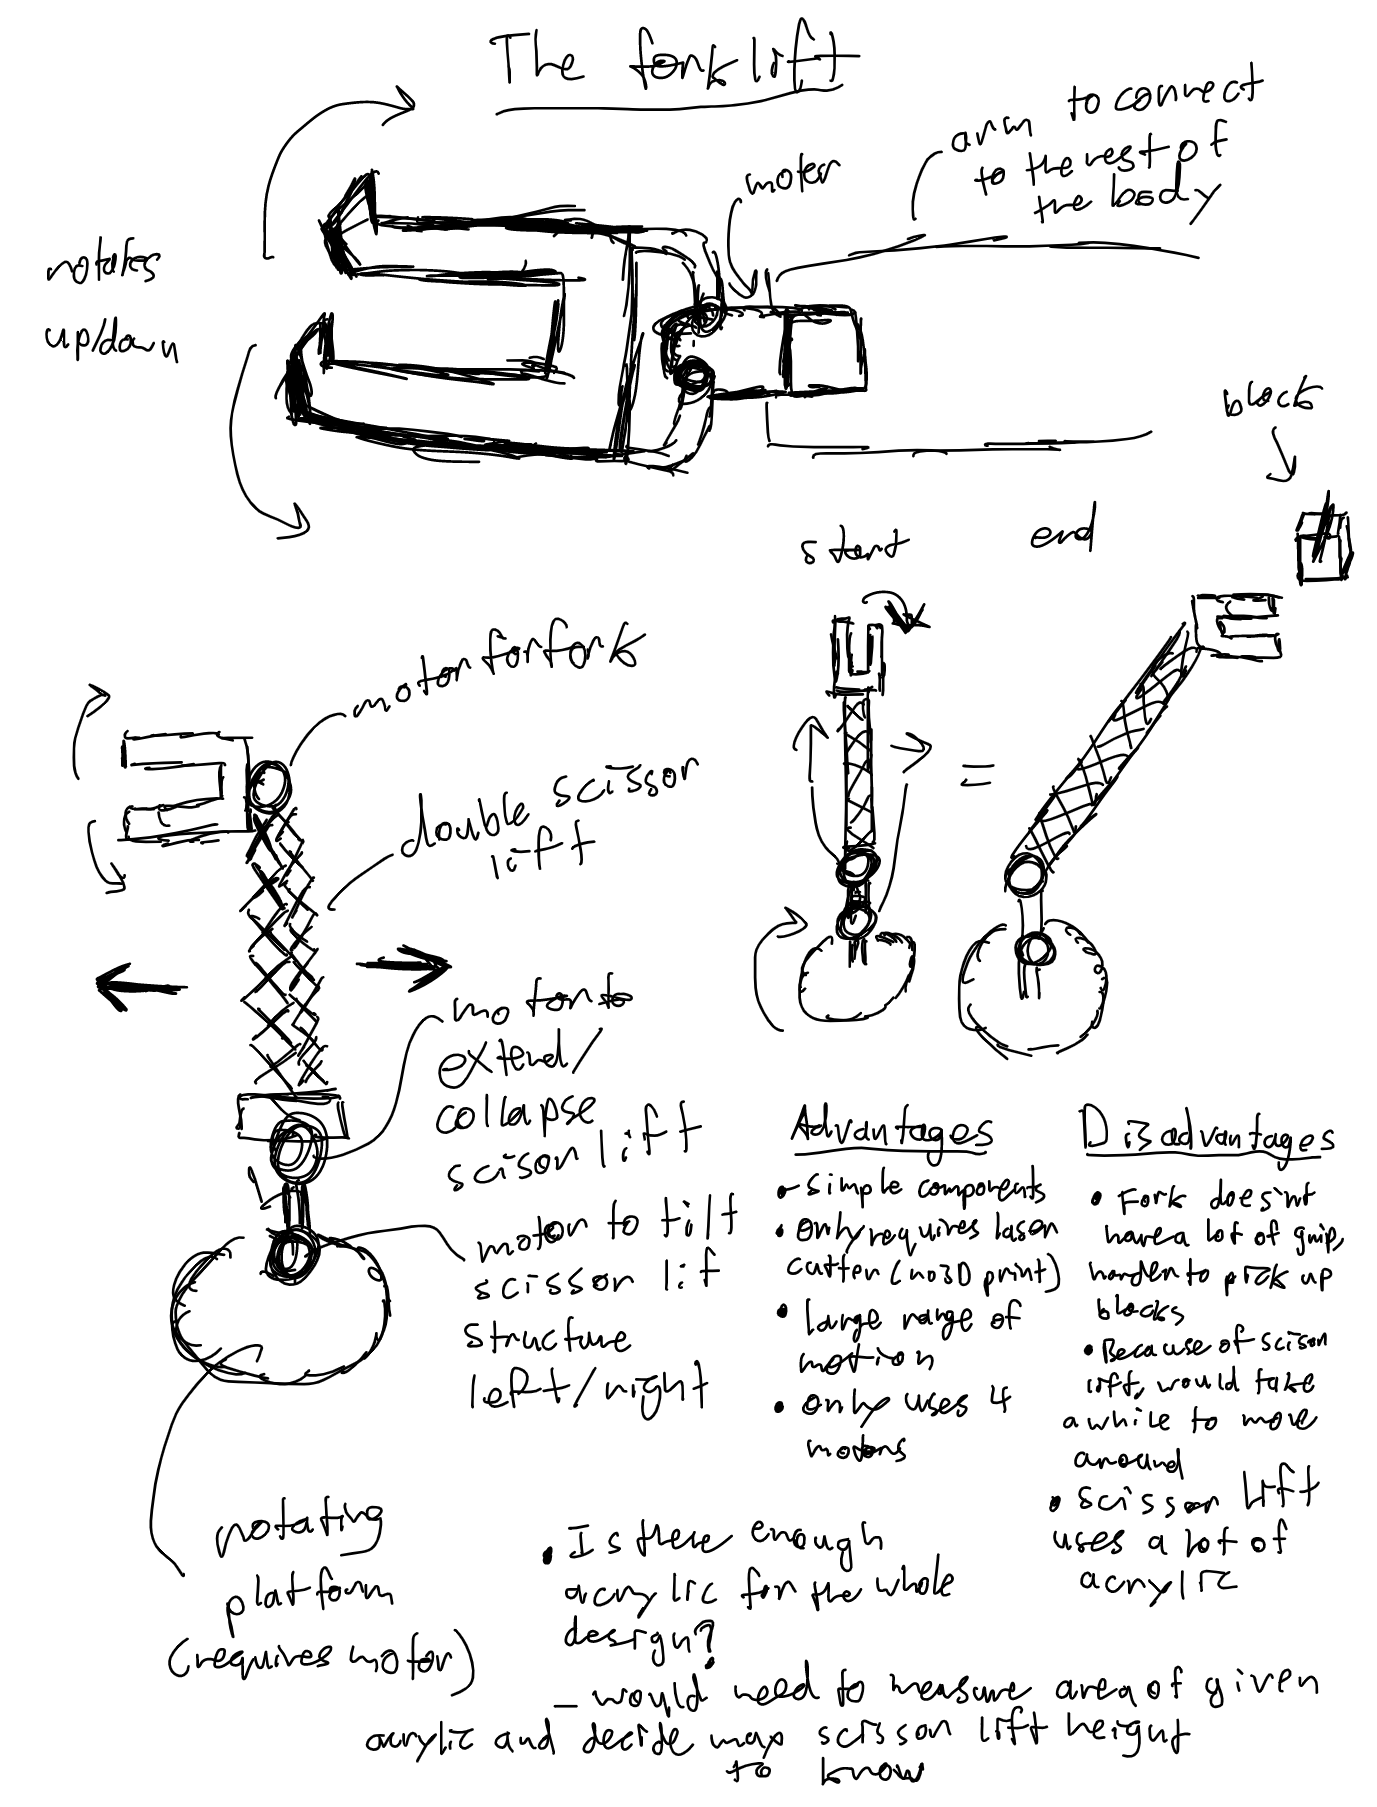 The forklift
arm to connect
to the rest of
the body
moter
rotates
up/down
block
start
end
=
motor for fork
double scissor
lift
motor to
extend/
collapse
scisor lift
motor to tilt
scissor lif
structure
left/right
rotating
platform
(requires motor)
Advantages
• simple components
• Only requires laser
cutter (no 3D print)
• large range of
motion
• only uses 4
motors
Disadvantages
• Fork does'nt
have a lot of grip,
harder to pick up
blocks
• Because of scisor
lift, would take
a while to move
around
• scissor lift
uses a lot of
acrylic
• Is there enough
acrylic for the whole
design?
- would need to measure area of given
acrylic and decide max scissor lift height
to know